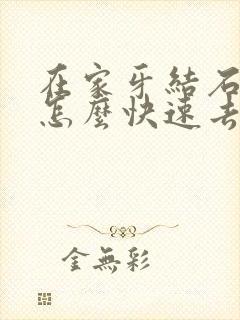 在家牙結石
怎麼快速去
金無彩